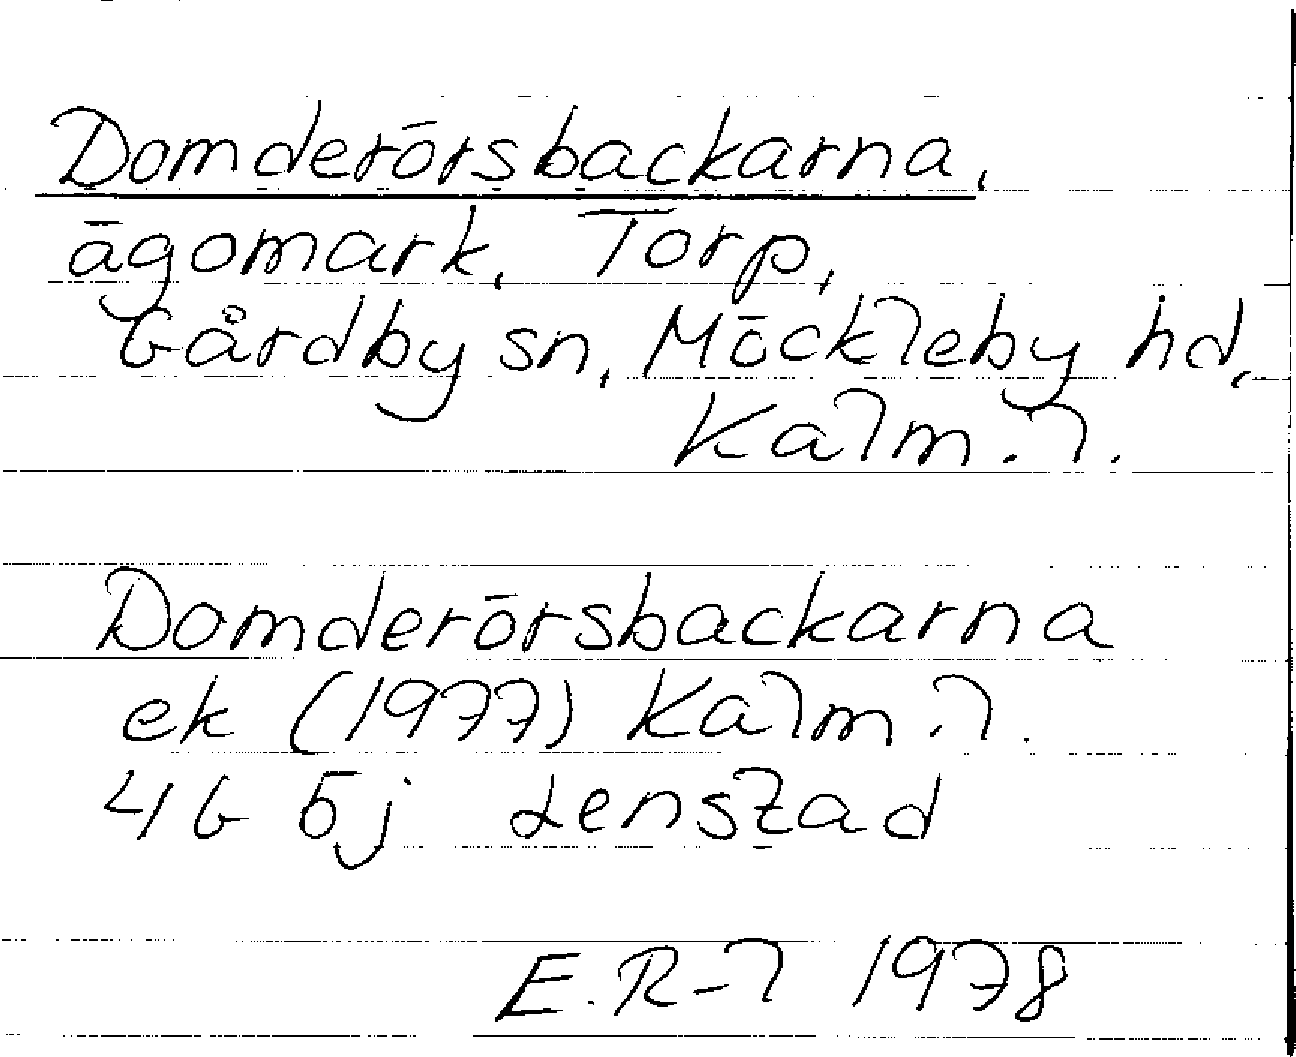 Domderörsbackarna,
ägomark, Torp,
Gårdby sn, Möckleby hd,
Kalm. l.
Domderörsbackarna
ek (1977) Kalm. l.
4G 5j Lenstad
E. R-l 1978